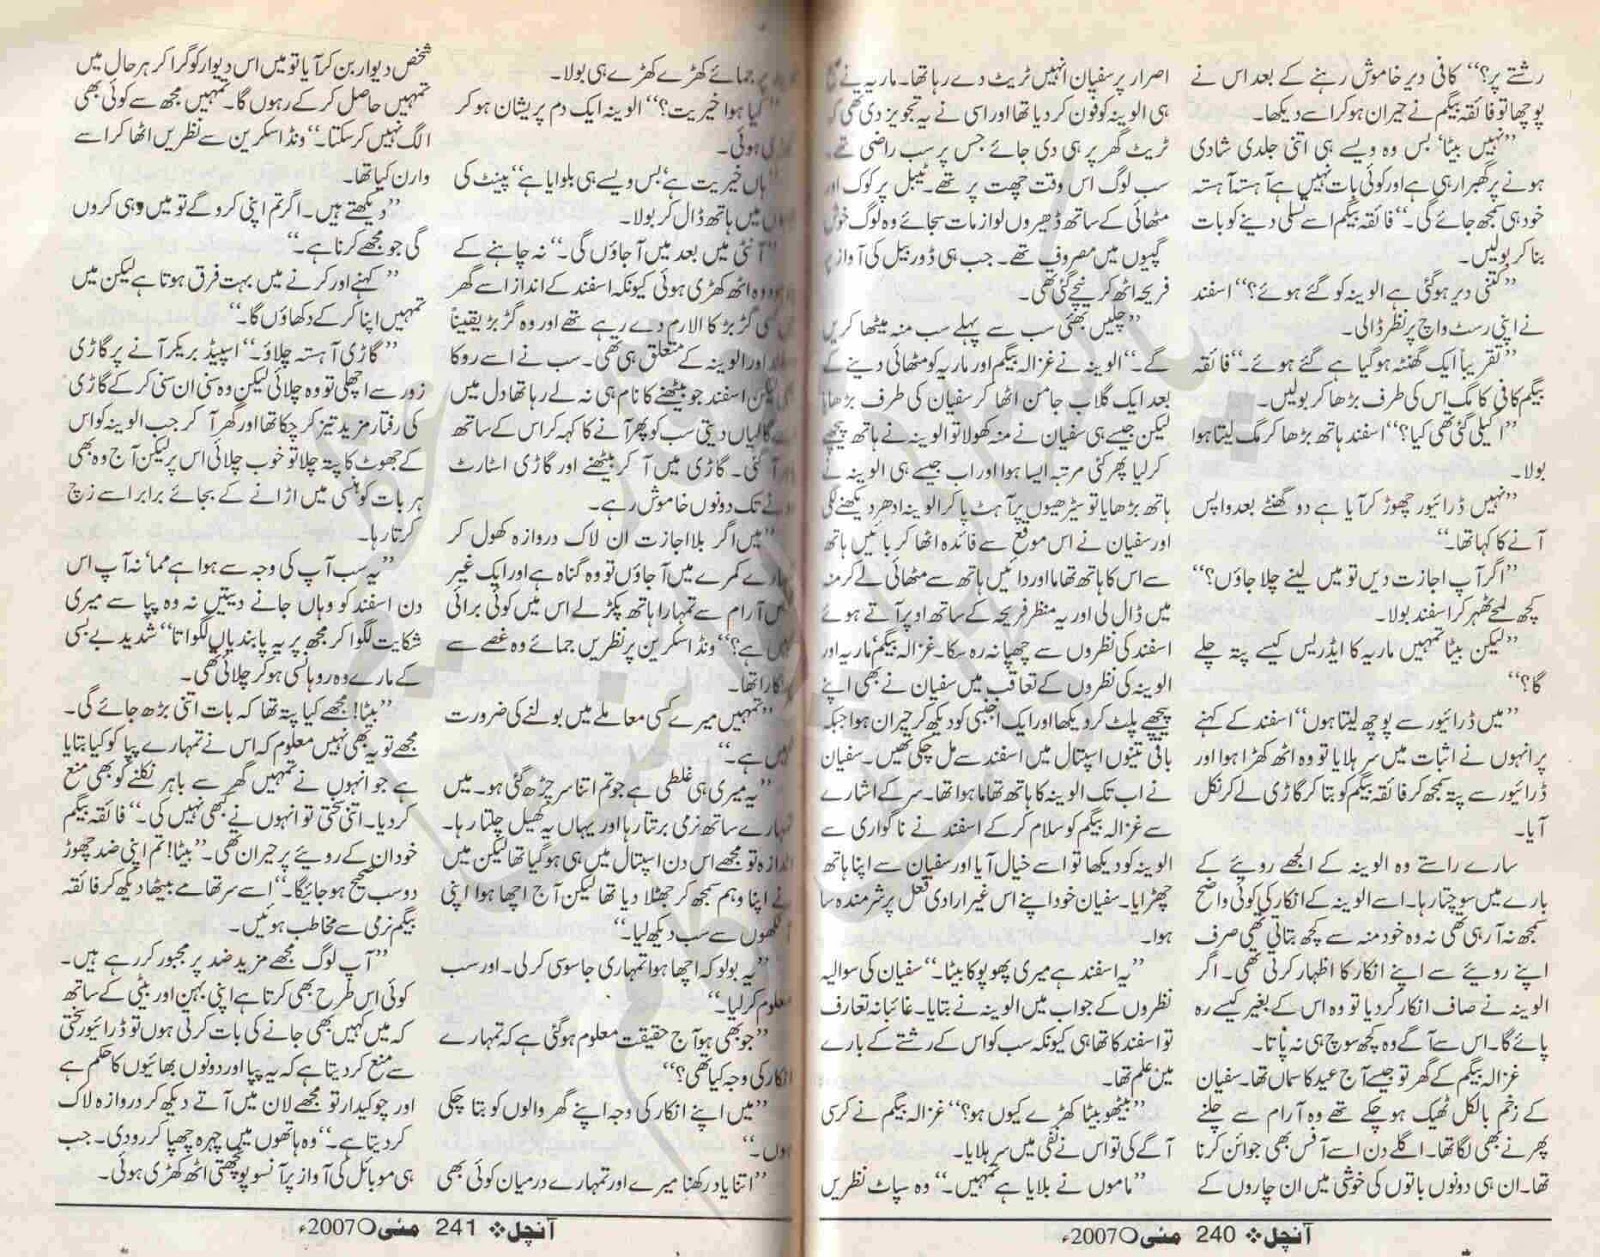 رشتے پر؟‘‘ کافی دیر خاموش رہنے کے بعد اس نے
پوچھا تو فائقہ بیگم نے حیران ہو کر اسے دیکھا۔
’’نہیں بیٹا‘ بس وہ ویسے ہی اتنی جلدی شادی
ہونے پر گھبرا رہی ہے اور کوئی بات نہیں ہے آہستہ آہستہ
خود ہی سمجھ جائے گی۔‘‘ فائقہ بیگم اسے تسلی دینے کو بات
بنا کر بولیں۔
’’کتنی دیر ہوگئی ہے الوینہ کو گئے ہوئے؟‘‘ اسفند
نے اپنی رسٹ واچ پر نظر ڈالی۔
’’تقریباً ایک گھنٹہ ہوگیا ہے گئے ہوئے۔‘‘ فائقہ
بیگم کافی کا مگ اس کی طرف بڑھا کر بولیں۔
’’اکیلی گئی تھی کیا؟‘‘ اسفند ہاتھ بڑھا کر مگ لیتا ہوا
بولا۔
’’نہیں ڈرائیور چھوڑ کر آیا ہے دو گھنٹے بعد واپس
آنے کا کہا تھا۔‘‘
’’اگر آپ اجازت دیں تو میں لینے چلا جاؤں؟‘‘
کچھ لمحے ٹھہر کر اسفند بولا۔
’’لیکن بیٹا تمہیں ماریہ کا ایڈریس کیسے پتہ چلے
گا؟‘‘
’’میں ڈرائیور سے پوچھ لیتا ہوں‘‘ اسفند کے کہنے
پر انہوں نے اثبات میں سر ہلایا تو وہ اٹھ کھڑا ہوا اور
ڈرائیور سے پتہ سمجھ کر فائقہ بیگم کو بتا کر گاڑی لے کر نکل
آیا۔
سارے راستے وہ الوینہ کے الجھے رویئے کے
بارے میں سوچتا رہا۔ اسے الوینہ کے انکار کی کوئی واضح
سمجھ نہ آ رہی تھی نہ وہ خود منہ سے کچھ بتاتی تھی صرف
اپنے رویئے سے اپنے انکار کا اظہار کرتی تھی۔ اگر
الوینہ نے صاف انکار کردیا تو وہ اس کے بغیر کیسے رہ
پائے گا۔ اس سے آگے وہ کچھ سوچ ہی نہ پاتا۔
غزالہ بیگم کے گھر تو جیسے آج عید کا سماں تھا۔ سفیان
کے زخم بالکل ٹھیک ہو چکے تھے وہ آرام سے چلنے
پھرنے بھی لگا تھا۔ اگلے دن اسے آفس بھی جوائن کرنا
تھا۔ ان ہی دونوں باتوں کی خوشی میں ان چاروں کے
اصرار پر سفیان انہیں ٹریٹ دے رہا تھا۔ ماریہ نے
ہی الوینہ کو فون کردیا تھا اور اسی نے یہ تجویز دی تھی کہ
ٹریٹ گھر پر ہی دی جائے جس پر سب راضی تھے۔
سب لوگ اس وقت چھت پر تھے۔ ٹیبل پر کوک اور
مٹھائی کے ساتھ ڈھیروں لوازمات سجائے وہ لوگ خوش
گپیوں میں مصروف تھے۔ جب ہی ڈور بیل کی آواز پر
فریحہ اٹھ کر نیچے گئی تھی۔
’’چلیں بھئی سب سے پہلے سب منہ میٹھا کریں
گے۔‘‘ الوینہ نے غزالہ بیگم اور ماریہ کو مٹھائی دینے کے
بعد ایک گلاب جامن اٹھا کر سفیان کی طرف بڑھایا
لیکن جیسے ہی سفیان نے منہ کھولا تو الوینہ نے ہاتھ پیچھے
کرلیا پھر کئی مرتبہ ایسا ہوا اور اب جیسے ہی الوینہ نے
ہاتھ بڑھایا تو سیڑھیوں پر آہٹ پا کر الوینہ ادھر دیکھنے لگی
اور سفیان نے اس موقع سے فائدہ اٹھا کر بائیں ہاتھ
سے اس کا ہاتھ تھاما اور دائیں ہاتھ سے مٹھائی لے کر منہ
میں ڈال لی اور یہ منظر فریحہ کے ساتھ اوپر آتے ہوئے
اسفند کی نظروں سے چھپا نہ رہ سکا۔ غزالہ بیگم‘ ماریہ اور
الوینہ کی نظروں کے تعاقب میں سفیان نے بھی اپنے
پیچھے پلٹ کر دیکھا اور ایک اجنبی کو دیکھ کر حیران ہوا جبکہ
باقی تینوں اسپتال میں اسفند سے مل چکی تھیں۔ سفیان
نے اب تک الوینہ کا ہاتھ تھاما ہوا تھا۔ سر کے اشارے
سے غزالہ بیگم کو سلام کر کے اسفند نے ناگواری سے
الوینہ کو دیکھا تو اسے خیال آیا اور سفیان سے اپنا ہاتھ
چھڑایا۔ سفیان خود اپنے اس غیر ارادی فعل پر شرمندہ سا
ہوا۔
’’یہ اسفند ہے میری پھوپو کا بیٹا۔‘‘ سفیان کی سوالیہ
نظروں کے جواب میں الوینہ نے بتایا۔ غائبانہ تعارف
تو اسفند کا تھا ہی کیونکہ سب کو اس کے رشتے کے بارے
میں علم تھا۔
’’بیٹھو بیٹا کھڑے کیوں ہو؟‘‘ غزالہ بیگم نے کرسی
آگے کی تو اس نے نفی میں سر ہلایا۔
’’ماموں نے بلایا ہے تمہیں۔‘‘ وہ سپاٹ نظریں
آنچل ❖ 240 مئی O2007ء
پر جمائے کھڑے کھڑے ہی بولا۔
’’کیا ہوا خیریت؟‘‘ الوینہ ایک دم پریشان ہو کر
ہوئی۔
’’ہاں خیریت ہے‘ بس ویسے ہی بلوایا ہے‘‘ پینٹ کی
میں ہاتھ ڈال کر بولا۔
’’آنٹی میں بعد میں آجاؤں گی۔‘‘ نہ چاہنے کے
وہ اٹھ کھڑی ہوئی کیونکہ اسفند کے انداز اسے گھر
گڑبڑ کا الارم دے رہے تھے اور وہ گڑبڑ یقیناً
اور الوینہ کے متعلق ہی تھی۔ سب نے اسے روکا
لیکن اسفند جو بیٹھنے کا نام ہی نہ لے رہا تھا دل میں
گالیاں دیتی سب کو پھر آنے کا کہہ کر اس کے ساتھ
آ گئی۔ گاڑی میں آ کر بیٹھنے اور گاڑی اسٹارٹ
تک دونوں خاموش رہے۔
’’میں اگر بلا اجازت ان لاک دروازہ کھول کر
کمرے میں آجاؤں تو وہ گناہ ہے اور ایک غیر
آرام سے تمہارا ہاتھ پکڑ لے اس میں کوئی برائی
ہے؟‘‘ ونڈ اسکرین پر نظریں جمائے وہ غصے سے
تھا۔
’’تمہیں میرے کسی معاملے میں بولنے کی ضرورت
ہے۔‘‘
’’یہ میری ہی غلطی ہے جو تم اتنا سر چڑھ گئی ہو۔ میں
ساتھ نرمی برتتا رہا اور یہاں یہ کھیل چلتا رہا۔
تو مجھے اس دن اسپتال میں ہی ہوگیا تھا لیکن میں
نے اپنا وہم سمجھ کر جھٹلا دیا تھا لیکن آج اچھا ہوا اپنی
سے سب دیکھ لیا۔‘‘
’’یہ بولو کہ اچھا ہوا تمہاری جاسوسی کرلی۔ اور سب
معلوم کرلیا۔‘‘
’’جو بھی ہو آج حقیقت معلوم ہوگئی ہے کہ تمہارے
انکار کی وجہ کیا تھی؟‘‘
’’میں اپنے انکار کی وجہ اپنے گھر والوں کو بتا چکی
ہوں۔‘‘
’’اتنا یاد رکھنا میرے اور تمہارے درمیان کوئی بھی
شخص دیوار بن کر آیا تو میں اس دیوار کو گرا کر ہر حال میں
تمہیں حاصل کر کے رہوں گا۔ تمہیں مجھ سے کوئی بھی
الگ نہیں کر سکتا۔‘‘ ونڈ اسکرین سے نظریں اٹھا کر اسے
وارن کیا تھا۔
’’دیکھتے ہیں۔ اگر تم اپنی کرو گے تو میں وہی کروں
گی جو مجھے کرنا ہے۔‘‘
’’کہنے اور کرنے میں بہت فرق ہوتا ہے لیکن میں
تمہیں اپنا کر کے دکھاؤں گا۔‘‘
’’گاڑی آہستہ چلاؤ۔‘‘ اسپیڈ بریکر آنے پر گاڑی
زور سے اچھلی تو وہ چلائی لیکن وہ سنی ان سنی کر کے گاڑی
کی رفتار مزید تیز کر چکا تھا اور گھر آ کر جب الوینہ کو اس
کے جھوٹ کا پتہ چلا تو خوب چلائی اس پر لیکن آج وہ بھی
ہر بات کو ہنسی میں اڑانے کے بجائے برابر اسے زچ
کرتا رہا۔
’’یہ سب آپ کی وجہ سے ہوا ہے مما‘ نہ آپ اس
دن اسفند کو وہاں جانے دیتیں نہ وہ پپا سے میری
شکایت لگوا کر مجھ پر یہ پابندیاں لگواتا‘‘ شدید بے بسی
کے مارے وہ روہانسی ہو کر چلائی تھی۔
’’بیٹا! مجھے کیا پتہ تھا کہ بات اتنی بڑھ جائے گی۔
مجھے تو یہ بھی نہیں معلوم کہ اس نے تمہارے پپا کو کیا بتایا
ہے جو انہوں نے تمہیں گھر سے باہر نکلنے کو بھی منع
کردیا۔ اتنی سختی تو انہوں نے کبھی نہیں کی۔‘‘ فائقہ بیگم
خود ان کے رویئے پر حیران تھی۔ ’’بیٹا! تم اپنی ضد چھوڑ
دو سب صحیح ہوجائیگا۔‘‘ اسے سر تھامے بیٹھا دیکھ کر فائقہ
بیگم نرمی سے مخاطب ہوئیں۔
’’آپ لوگ مجھے مزید ضد پر مجبور کر رہے ہیں۔
کوئی اس طرح بھی کرتا ہے اپنی بہن اور بیٹی کے ساتھ
کہ میں کہیں بھی جانے کی بات کرتی ہوں تو ڈرائیور سختی
سے منع کر دیتا ہے کہ یہ پپا اور دونوں بھائیوں کا حکم ہے
اور چوکیدار تو مجھے لان میں آتے دیکھ کر دروازہ لاک
کر دیتا ہے۔‘‘ وہ ہاتھوں میں چہرہ چھپا کر رو دی۔ جب
ہی موبائل کی آواز پر آنسو پونچھتی اٹھ کھڑی ہوئی۔
آنچل ❖ 241 مئی O2007ء